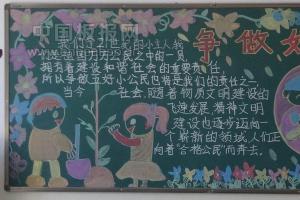 中国板报网
争做好
我们是21世纪的小主人我
们是祖国万万公民之中的一员
拥有着建设和谐社会的重要责任,
所以争做文好小公民也当是我们的责任之一
当今 社会,随着物质文明建设的
飞速发展,精神文明
建设也逐步迈向一
个崭新的领域人们正
向着“合格公民”而奔去。